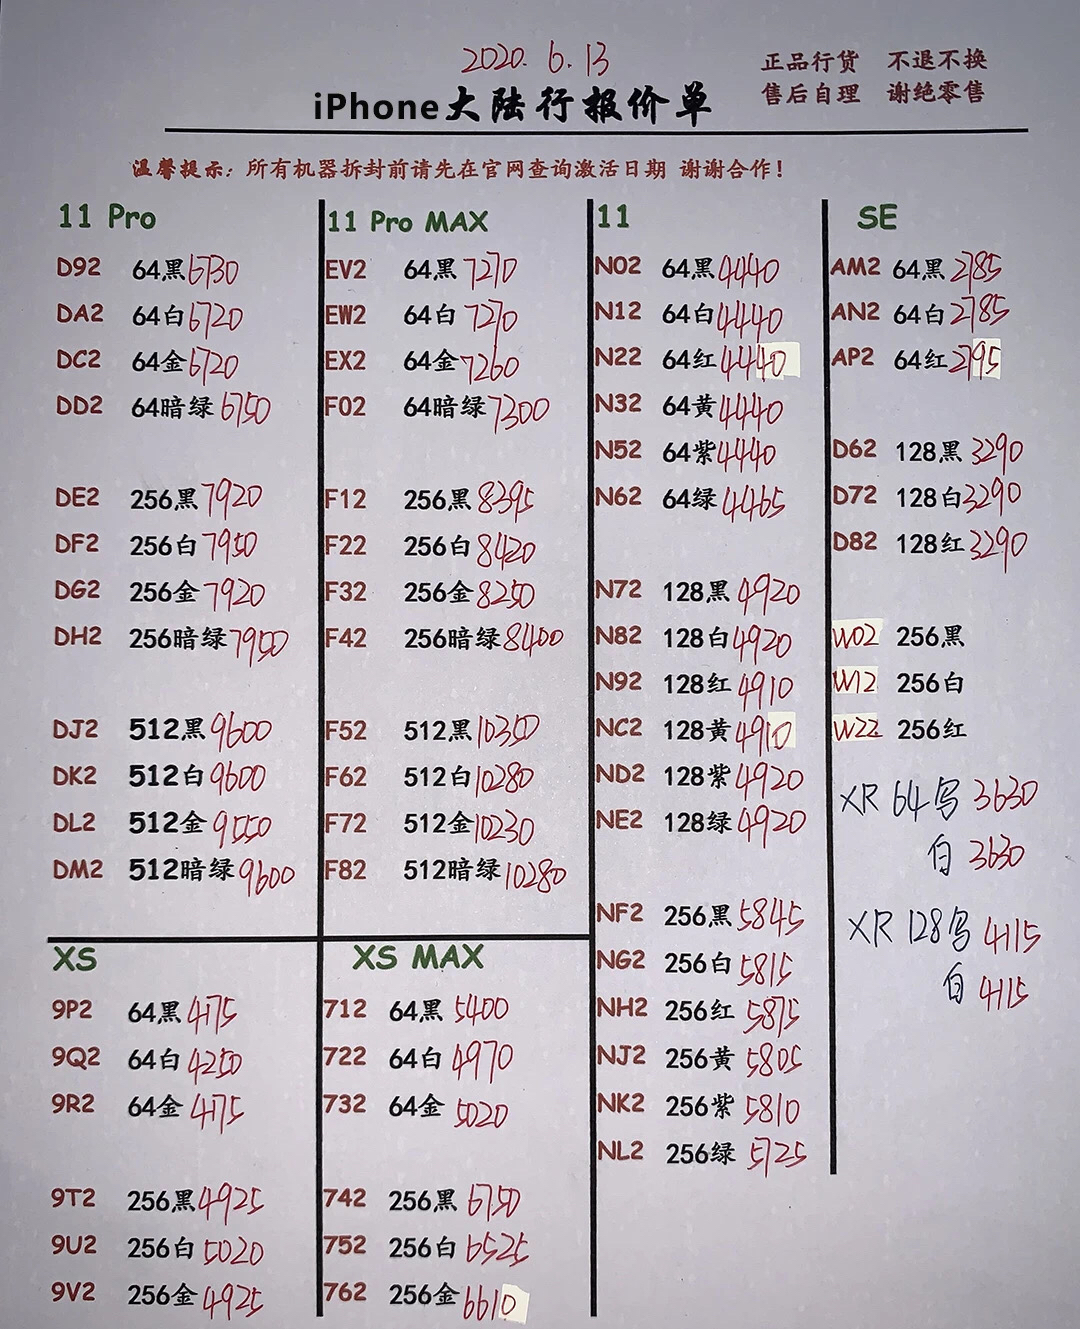 2020. 6. 13
正品行货 不退不换
iPhone大陆行报价单
售后自理 谢绝零售
温馨提示：所有机器拆封前请先在官网查询激活日期 谢谢合作！
11 Pro
D92 64黑 6730
DA2 64白 6720
DC2 64金 6720
DD2 64暗绿 6750
DE2 256黑 7920
DF2 256白 7950
DG2 256金 7920
DH2 256暗绿 7950
DJ2 512黑 9600
DK2 512白 9600
DL2 512金 9550
DM2 512暗绿 9600
11 Pro MAX
EV2 64黑 7270
EW2 64白 7270
EX2 64金 7260
F02 64暗绿 7300
F12 256黑 8395
F22 256白 8420
F32 256金 8250
F42 256暗绿 8400
F52 512黑 10350
F62 512白 10280
F72 512金 10230
F82 512暗绿 10280
11
N02 64黑 4440
N12 64白 4440
N22 64红 4440
N32 64黄 4440
N52 64紫 4440
N62 64绿 4465
N72 128黑 4920
N82 128白 4920
N92 128红 4910
NC2 128黄 4910
ND2 128紫 4920
NE2 128绿 4920
NF2 256黑 5845
NG2 256白 5815
NH2 256红 5875
NJ2 256黄 5805
NK2 256紫 5810
NL2 256绿 5725
SE
AM2 64黑 2785
AN2 64白 2785
AP2 64红 2795
D62 128黑 3290
D72 128白 3290
D82 128红 3290
W02 256黑
W12 256白
W22 256红
XR 64 3630
白 3630
XR 128 4115
白 4115
XS
9P2 64黑 4175
9Q2 64白 4250
9R2 64金 4175
9T2 256黑 4925
9U2 256白 5020
9V2 256金 4925
XS MAX
712 64黑 5400
722 64白 4970
732 64金 5020
742 256黑 6750
752 256白 6525
762 256金 6610